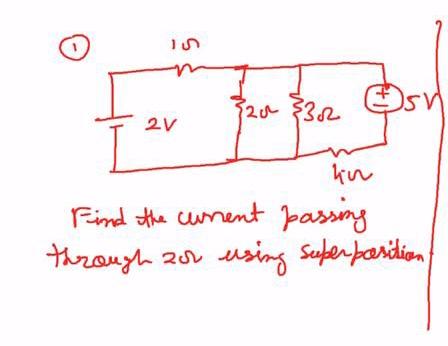 ①
1Ω
2V
2Ω
3Ω
+
-
5V
4Ω
Find the current passing
through 2Ω using superposition